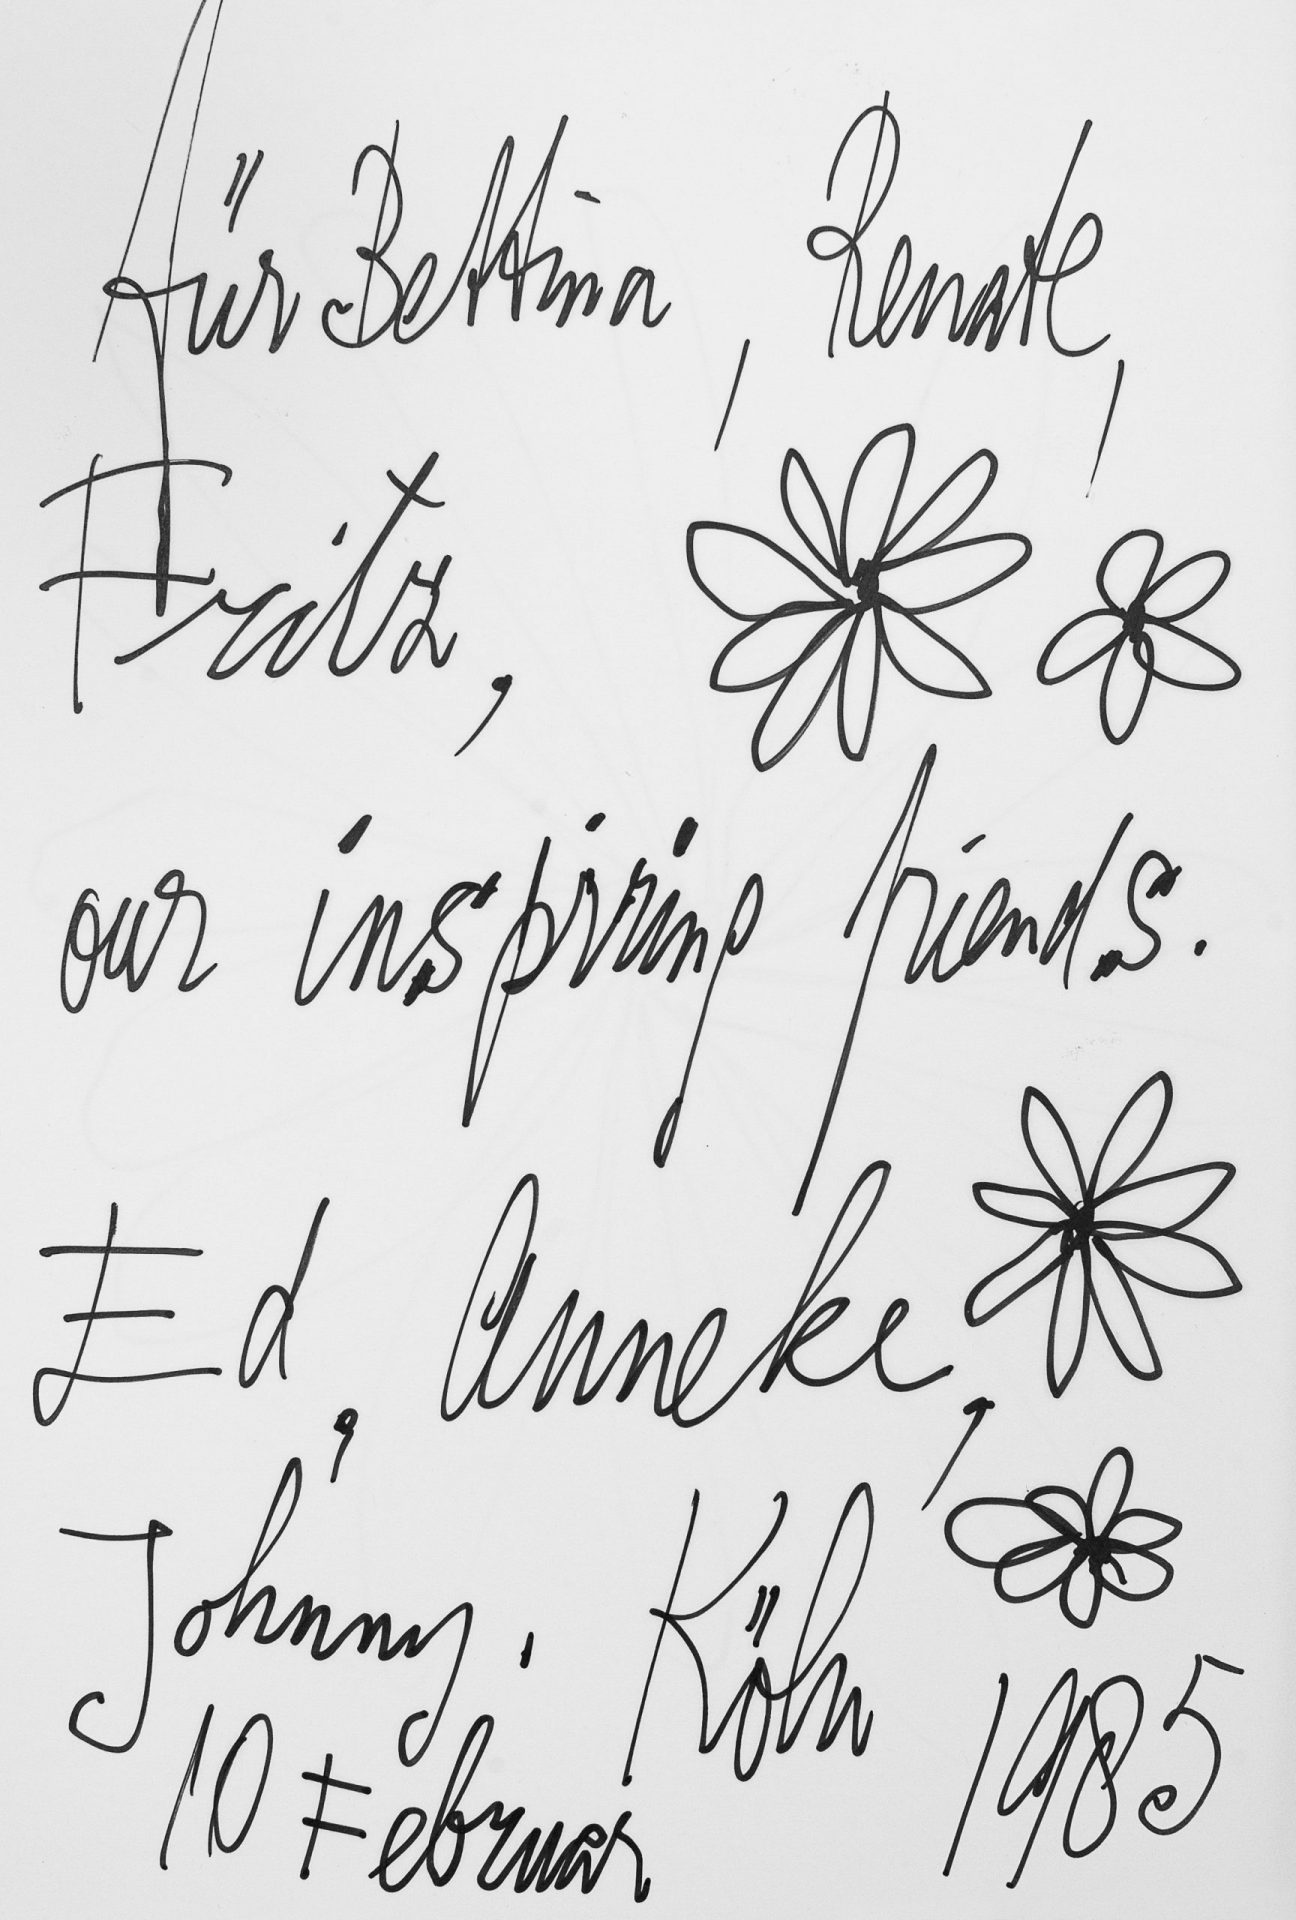 für Bettina, Renate,
Fritz,
our inspiring friends.
Ed, Anneke,
Johnny. Köln
10 Februar 1985